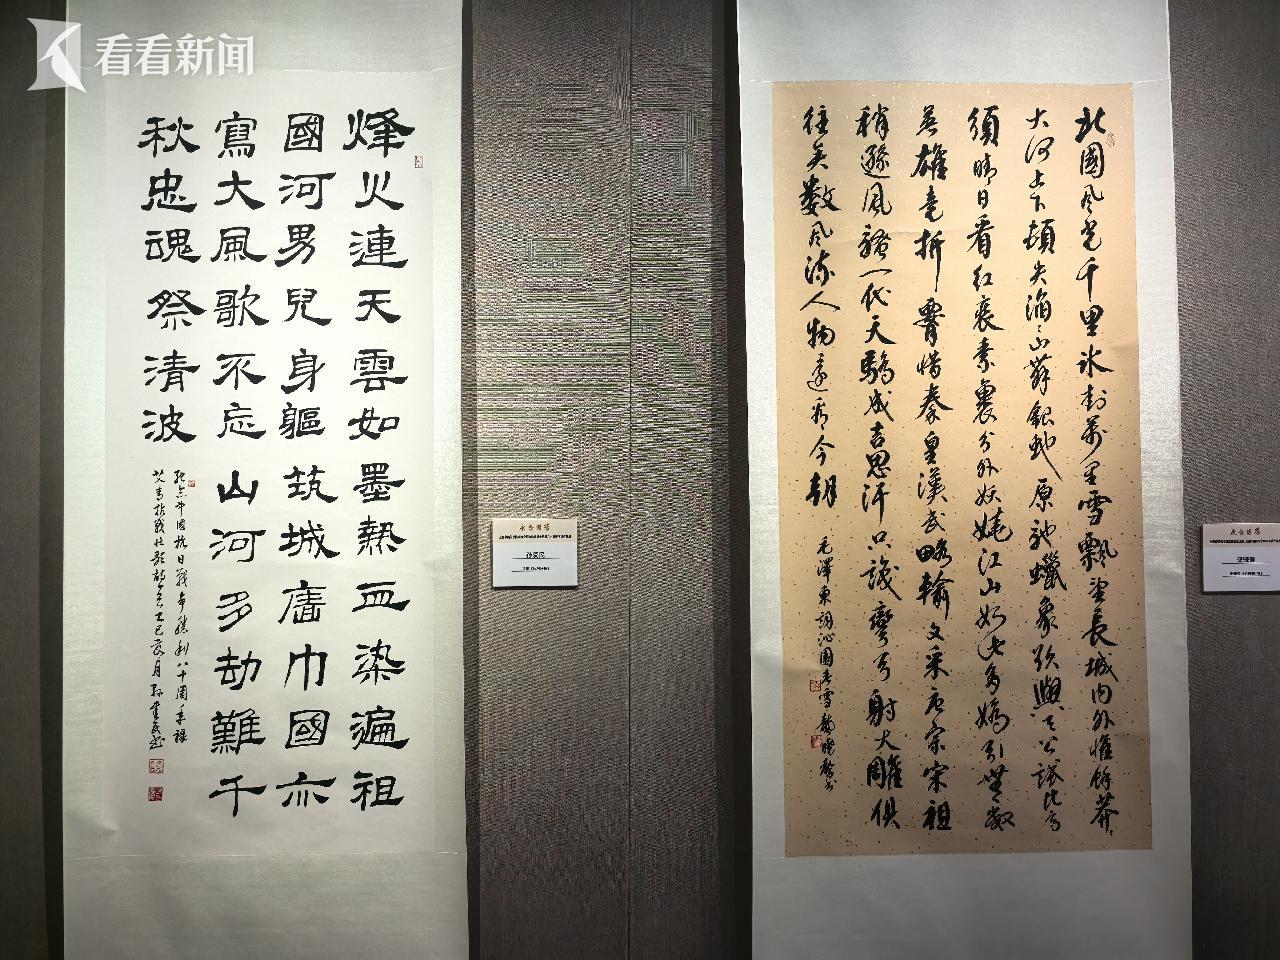 看看新闻
烽火連天雲如墨熱血染遍祖
國河男兒身軀筑城牆巾國亦
寫大風歌不忘山河多劫難千
秋忠魂祭清波
紀念中國抗日戰爭勝利八十周年錄
北國风光千里冰封萬里雪飄望長城内外惟餘莽々
大河上下頓失滔々山舞銀蛇原驰蠟象欲與天公試比高
須晴日看红裝素裹分外妖娆江山如此多嬌引無數
英雄竞折腰惜秦皇漢武略輸文采唐宗宋祖
稍遜风騷一代天驕成吉思汗只識彎弓射大雕俱
往矣數风流人物還看今朝
毛澤東詞沁園春雪
永念國殤
永念國殤